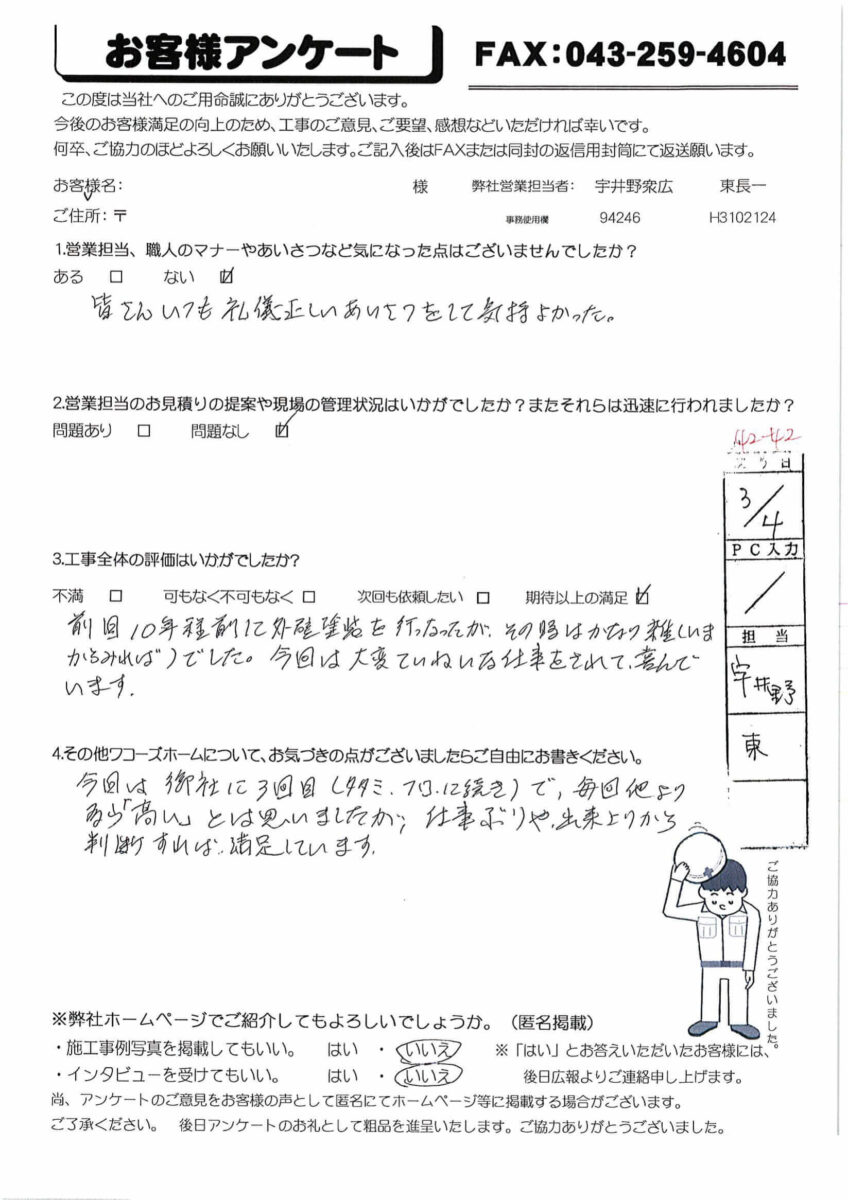 お客様アンケート
FAX：043-259-4604
この度は当社へのご用命誠にありがとうございます。
今後のお客様満足の向上のため、工事のご意見、ご要望、感想などいただければ幸いです。
何卒、ご協力のほどよろしくお願いいたします。ご記入後はFAXまたは同封の返信用封筒にて返送願います。
お客様名： 様 弊社営業担当者： 宇井野衆広 東長一
ご住所：〒 事務使用欄 94246 H3102124
1.営業担当、職人のマナーやあいさつなど気になった点はございませんでしたか？
ある □ ない ☑
皆さんいつも礼儀正しいあいさつをして気持よかった。
2.営業担当のお見積りの提案や現場の管理状況はいかがでしたか？またそれらは迅速に行われましたか？
問題あり □ 問題なし ☑
42-42
3/4
PC入力
／
担当
宇井野
東
3.工事全体の評価はいかがでしたか？
不満 □ 可もなく不可もなく □ 次回も依頼したい □ 期待以上の満足 ☑
前回10年程前に外壁塗装を行なったが、その時はかなり雑(いま
からみれば)でした。今回は大変ていねいな仕事をされて、喜んで
います。
4.その他ワコーズホームについて、お気づきの点がございましたらご自由にお書きください。
今回は御社に3回目(タタミ、フロ、に続き)で、毎回他より
「高い」とは思いましたが、仕事ぶりや、出来上りから
判断すれば、満足しています。
ご協力ありがとうございました。
※弊社ホームページでご紹介してもよろしいでしょうか。（匿名掲載）
・施工事例写真を掲載してもいい。 はい ・ いいえ ※「はい」とお答えいただいたお客様には、
・インタビューを受けてもいい。 はい ・ いいえ 後日広報よりご連絡申し上げます。
尚、アンケートのご意見をお客様の声として匿名にてホームページ等に掲載する場合がございます。
ご了承ください。 後日アンケートのお礼として粗品を進呈いたします。ご協力ありがとうございました。